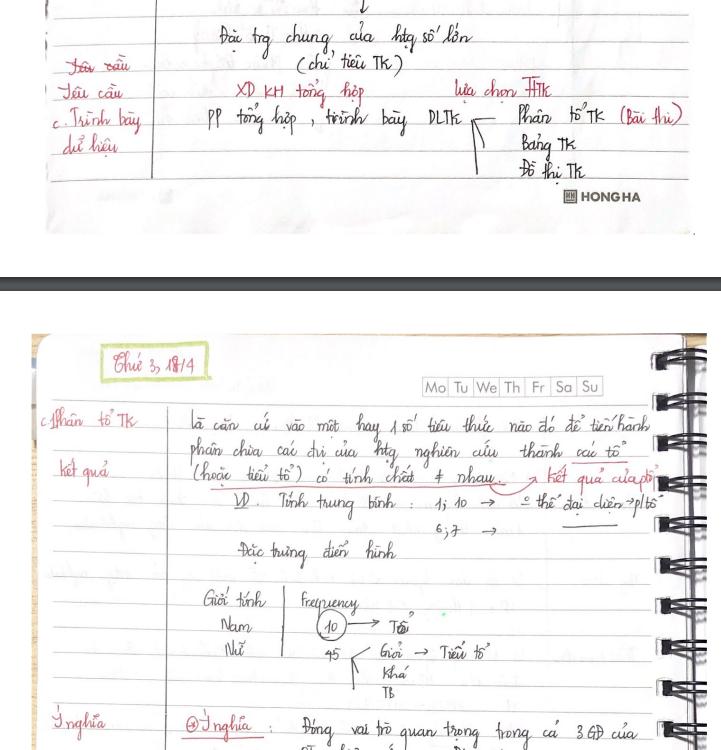 Đặc trg chung của htg số lớn
(chỉ tiêu TK)
Yêu cầu
Yêu cầu XD KH tổng hợp lựa chọn
c. Trình bày PP tổng hợp, trình bày DLTK Phân tổ TK (Bài thi)
dữ liệu Bảng TK
Đồ thị TK
HONG HA
Thứ 3, 18/4
Mo Tu We Th Fr Sa Su
c. Phân tổ TK là căn cứ vào một hay 1 số tiêu thức nào đó để tiến hành
phân chia các đvi của htg nghiên cứu thành các tổ
kết quả (hoặc tiểu tổ) có tính chất ≠ nhau. → kết quả của ptổ
VD. Tính trung bình: 1; 10 → thể đại diện → p/tổ
6; 7 →
Đặc trưng điển hình
Giới tính Frequency
Nam 10 → Tổ
Nữ 45 Giỏi → Tiểu tổ
Khá
TB
Ý nghĩa * Ý nghĩa: Đóng vai trò quan trọng trong cả 3 GĐ của